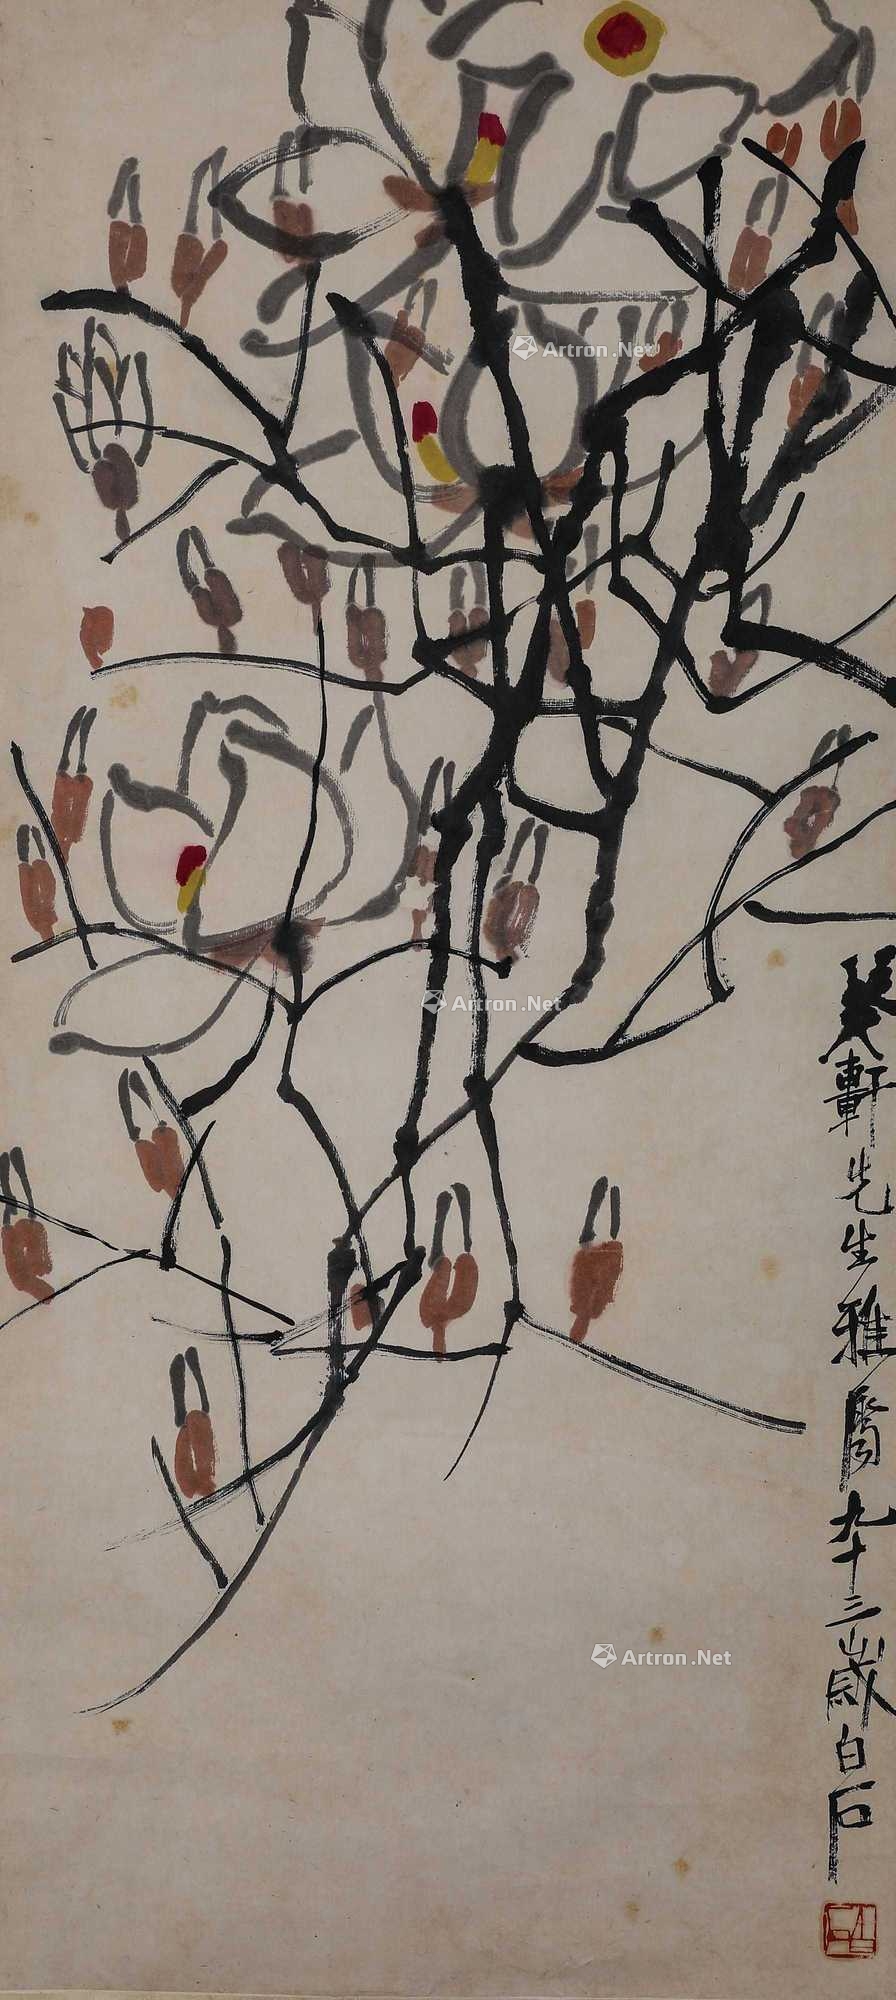 Artron.Net
Artron.Net
Artron.Net
癸軒先生雅屬九十三歲白石
白石